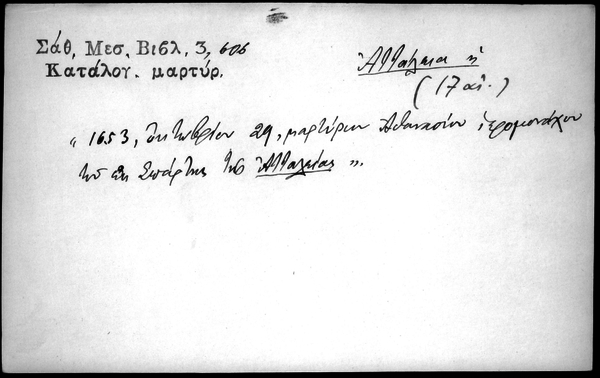 Σάθ, Μεσ. Βιβλ, 3, 606
Κατάλογ. μαρτύρ.
Ἀττάλεια ἡ
(17 αἰ.)
" 1653, Ὀκτωβρίου 29, μαρτύριον Ἀθανασίου ἱερομονάχου
τοῦ ἐκ Σπάρτης τῆς Ἀτταλείας ".